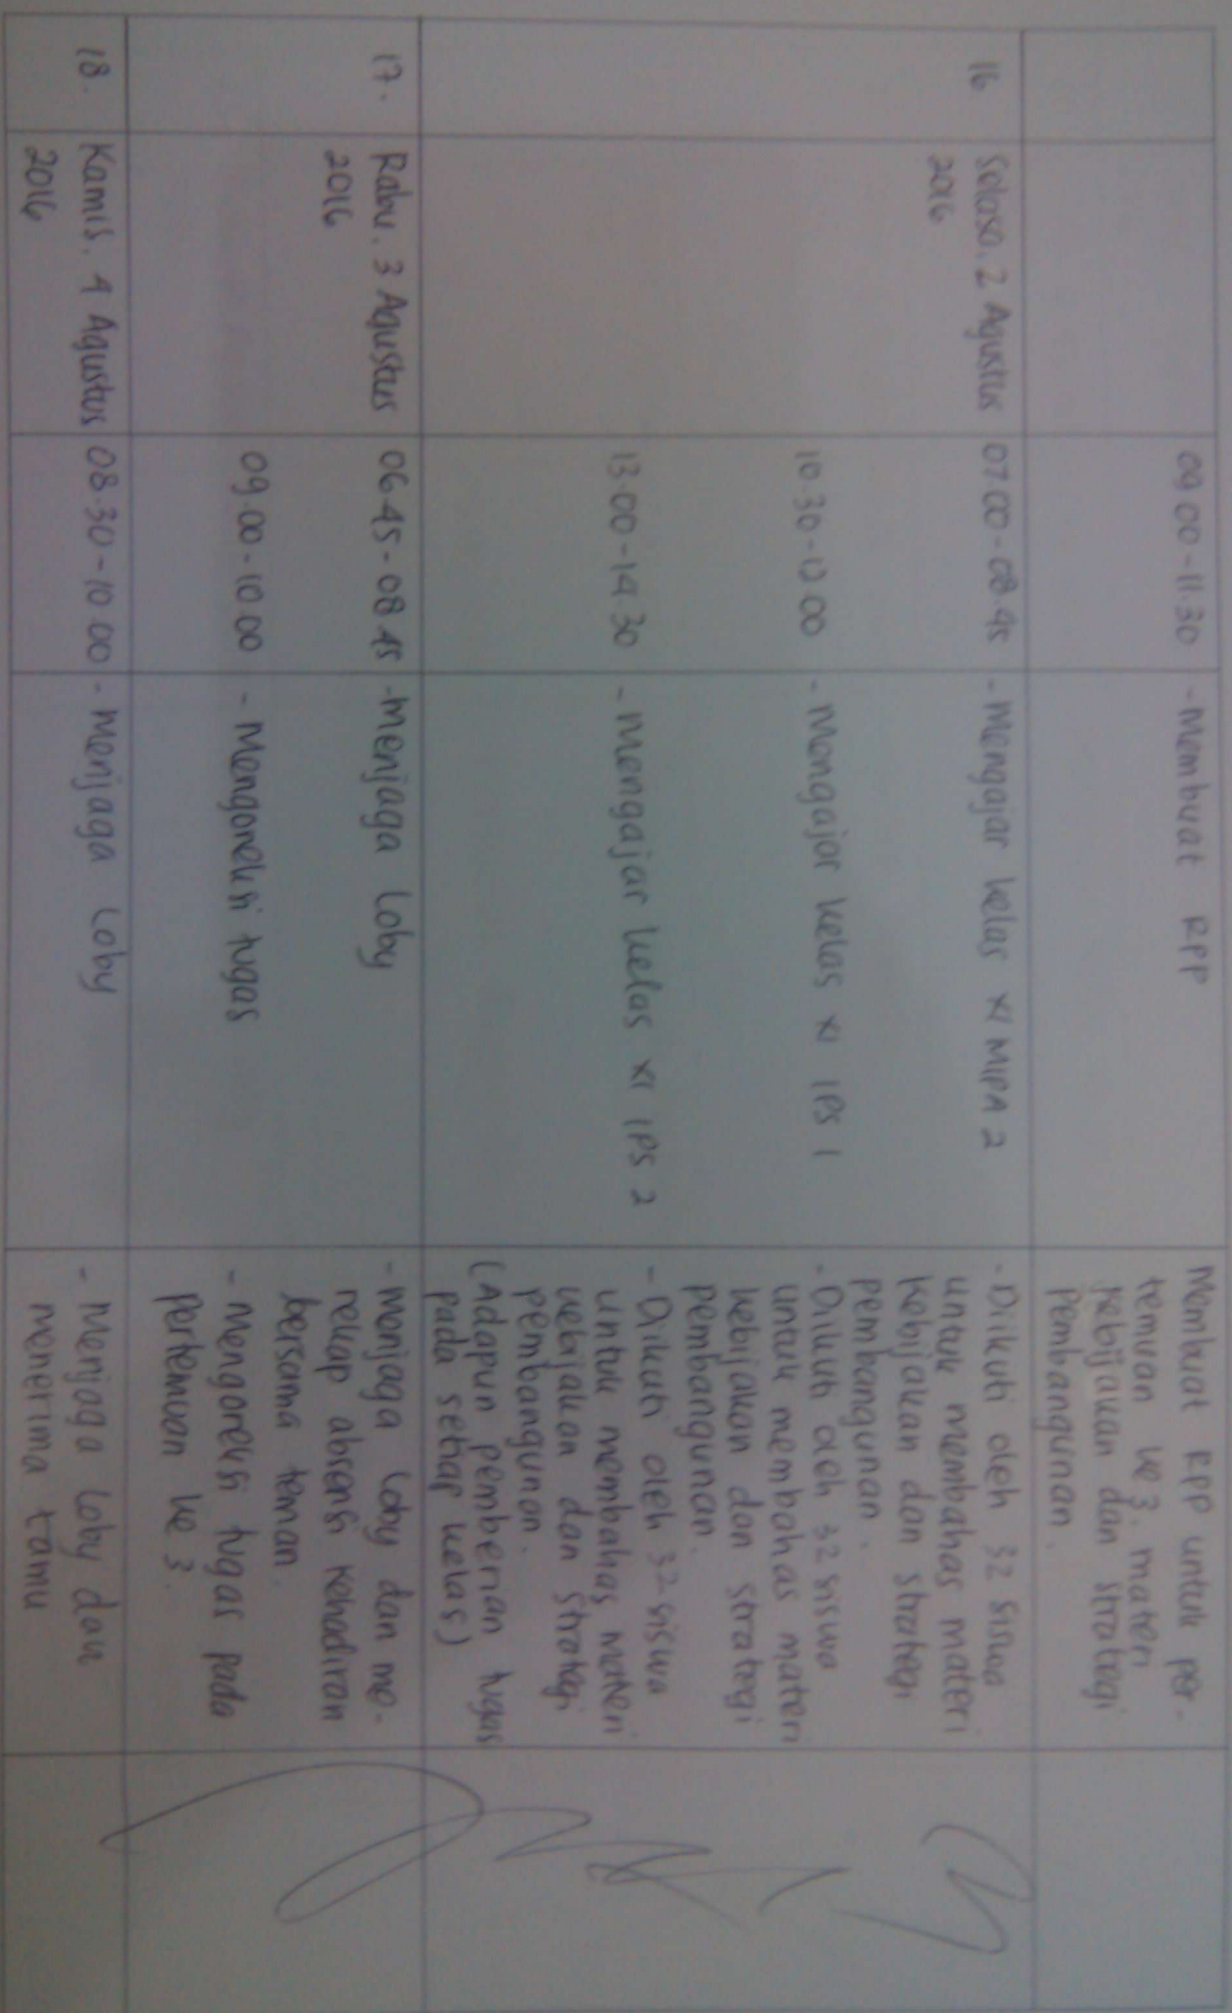 09.00-11.30 - Membuat RPP Membuat RPP untuk per-
temuan ke 3. materi
kebijakan dan strategi
pembangunan.
16. Selasa, 2 Agustus 07.00-08.45 - Mengajar kelas XI MIPA 2 - Diikuti oleh 32 siswa
2016 untuk membahas materi
kebijakan dan strategi
pembangunan.
10.30-12.00 - Mengajar kelas XI IPS 1 - Diikuti oleh 32 siswa
untuk membahas materi
kebijakan dan strategi
pembangunan.
13.00-14.30 - Mengajar kelas XI IPS 2 - Diikuti oleh 32 siswa
untuk membahas materi
kebijakan dan strategi
pembangunan.
(Adapun pemberian tugas
pada setiap kelas)
17. Rabu, 3 Agustus 06.45-08.45 - Menjaga Loby - Menjaga Loby dan me-
2016 rekap absensi kehadiran
bersama teman.
09.00-10.00 - Mengoreksi tugas - Mengoreksi tugas pada
pertemuan ke 3.
18. Kamis, 4 Agustus 08.30-10.00 - Menjaga Loby - Menjaga Loby dan
2016 menerima tamu